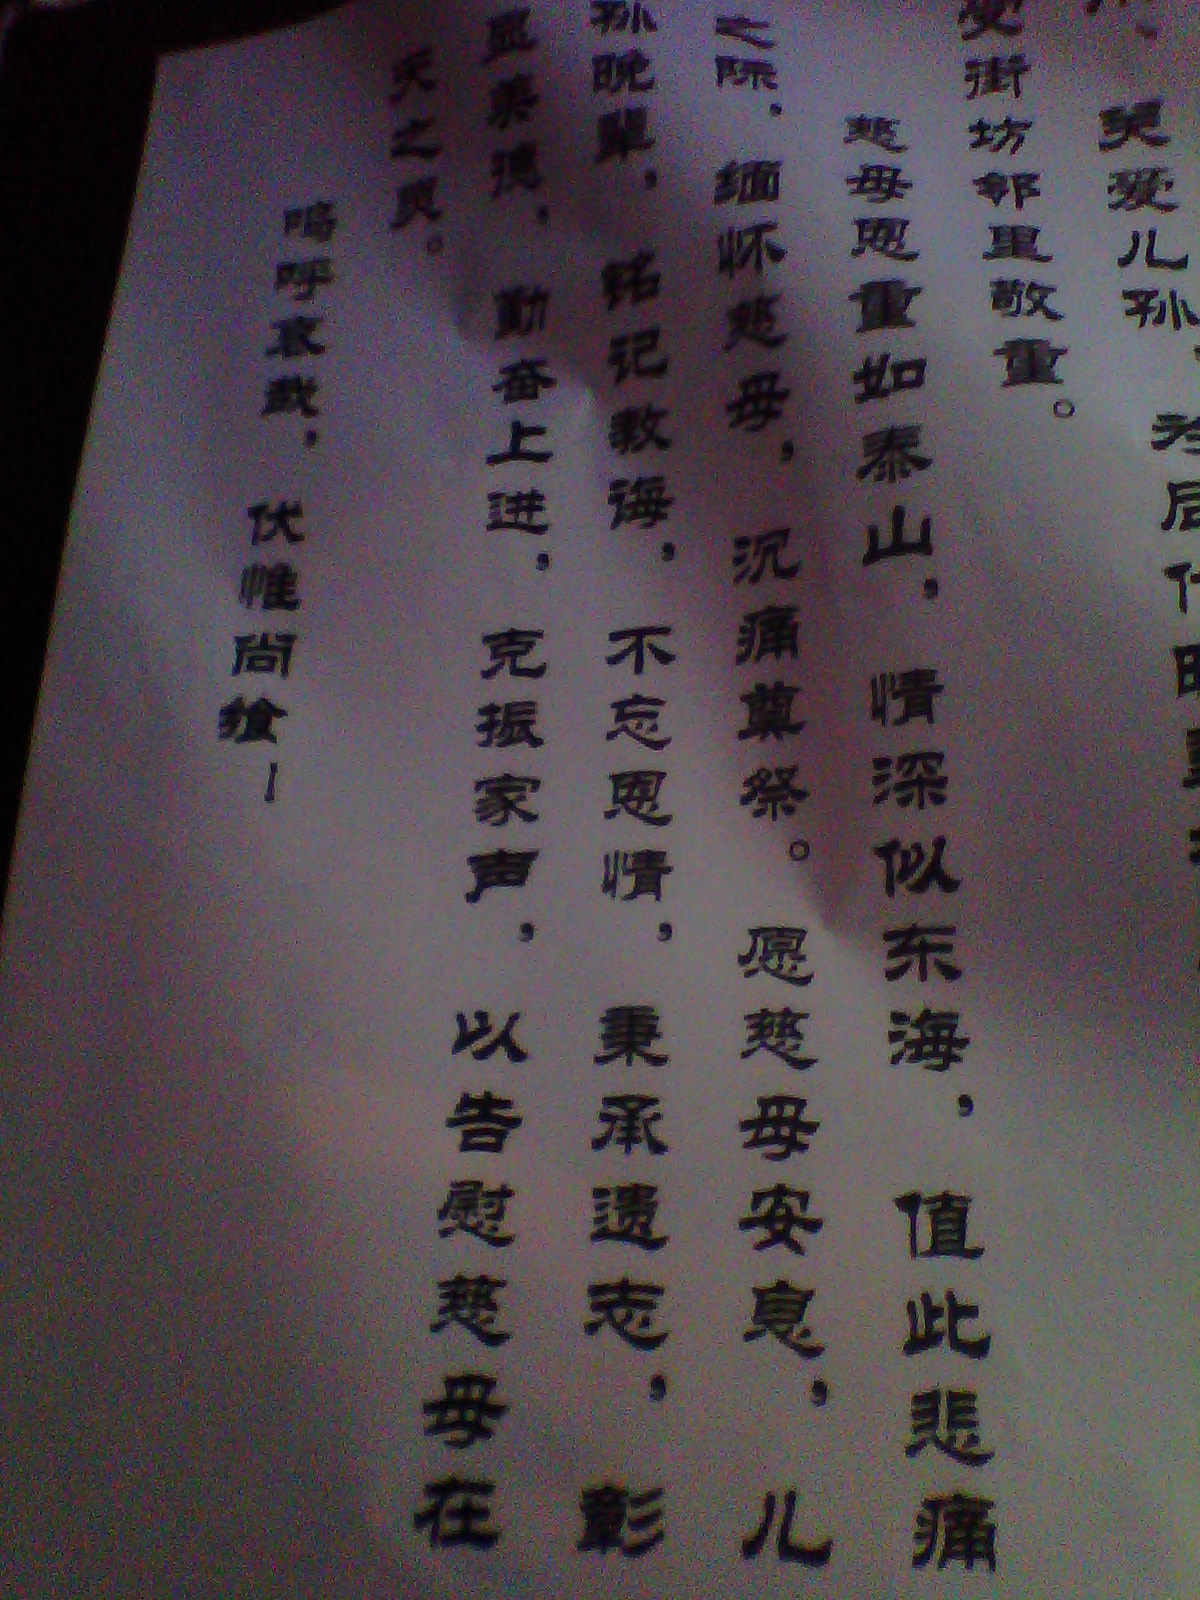 哭爱儿孙,
后代
受街坊邻里敬重。
慈母恩重如泰山,情深似东海,值此悲痛
之际,缅怀慈母,沉痛奠祭。愿慈母安息,儿
孙晚辈,铭记教诲,不忘恩情,秉承遗志,彰
显美德,勤奋上进,克振家声,以告慰慈母在
天之灵。
呜呼哀哉,伏惟尚飨!